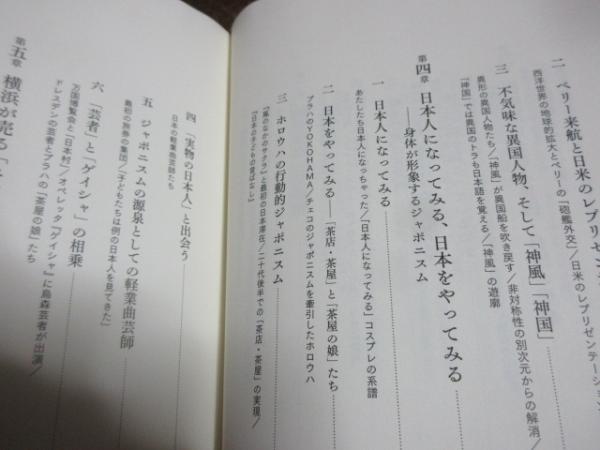 二 ペリー来航と日米のレプリゼン
西洋世界の地球的拡大とペリーの「砲艦外交」／日米のレプリゼンテーション
三 不気味な異国人物、そして「神風」「神国」
異形の異国人物たち／「神風」が異国船を吹き戻す／非対称性の別次元からの解消／
「神国」では異国のトラも日本語を覚える／「神風」の遊廓
第四章 日本人になってみる、日本をやってみる
――身体が形象するジャポニスム
一 日本人になってみる
あたしたち日本人になっちゃった／「日本人になってみる」コスプレの系譜
二 日本をやってみる――「茶店・茶屋」と「茶屋の娘」たち
プラハのYOKOHAMA／チェコのジャポニスムを牽引したホロウハ
三 ホロウハの行動的ジャポニスム
『嵐のなかのサクラ』と最初の日本滞在／二十代後半での「茶店・茶屋」の実現／
『日本の子どもの昔ばなし』
四 「実物の日本人」と出会う
日本の軽業曲芸師たち
五 ジャポニスムの源泉としての軽業曲芸師
最初の旅券の集団／「子どもたちは例の日本人を見てきた」
六 「芸者」と「ゲイシャ」の相乗
万国博覧会と「日本村」／オペレッタ『ゲイシャ』に烏森芸者が出演／
ドレスデンの芸者とプラハの「茶屋の娘」たち
第五章 横浜が売る「